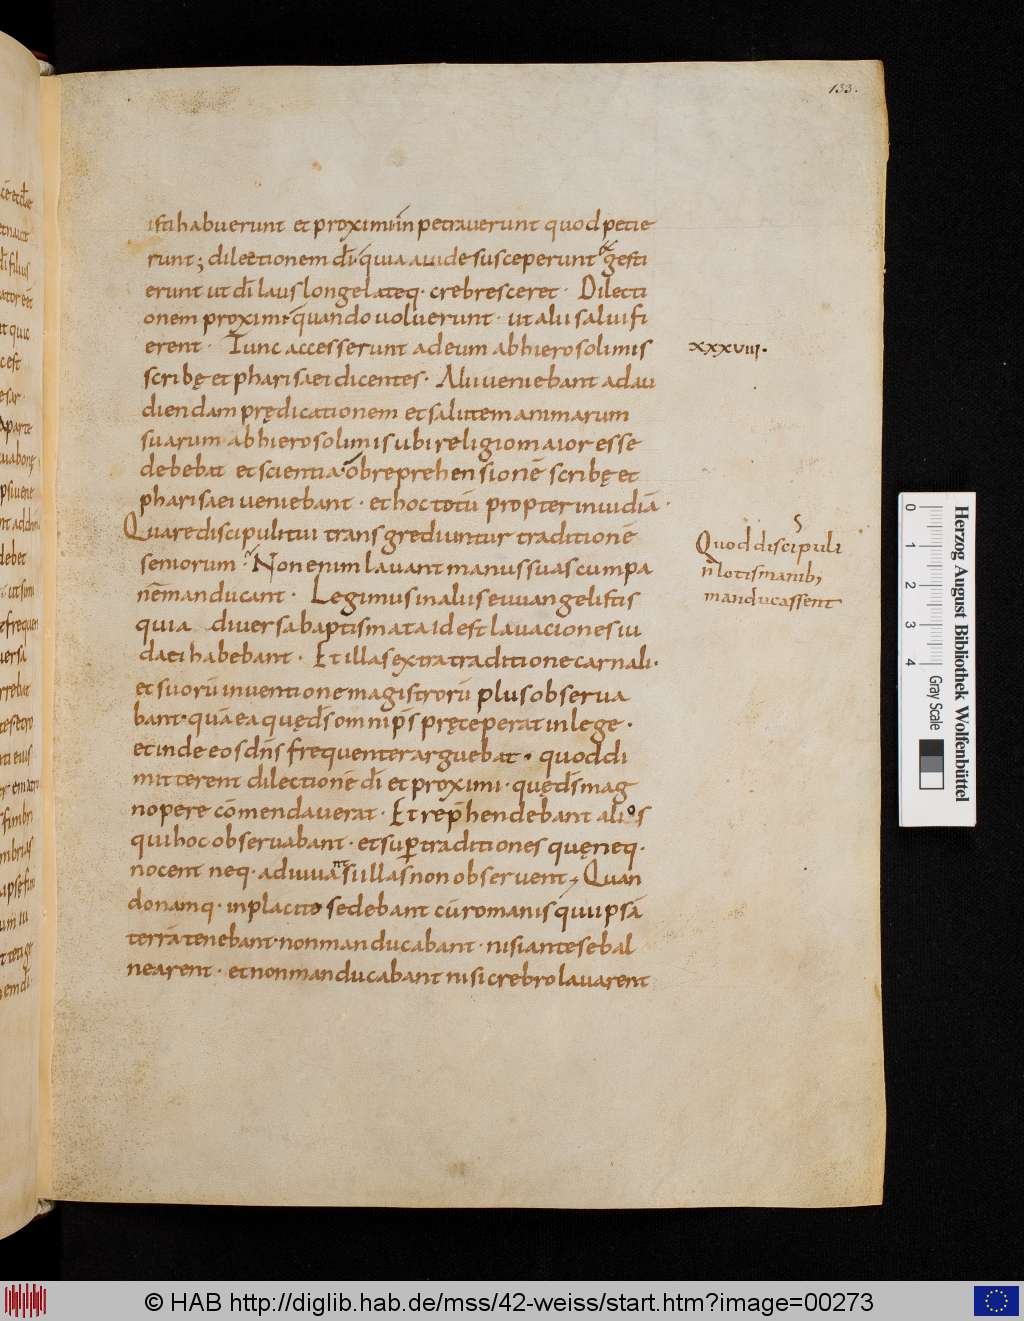 133.
isti habuerunt et proximi inpetraverunt quod petie
runt; dilectionem dī. quia avide susceperunt & gesti
erunt ut dī laus longe lateq. crebresceret. Dilecti
onem proximi. quando voluerunt. ut alii salvi fi
erent. Tunc accesserunt ad eum ab hierosolimis
xxxviii.
scribę et pharisaei dicentes. Alii veniebant ad au
diendam prędicationem et salutem animarum
suarum ab hierosolimis ubi religio maior esse
debebat et scientia. ob reprehensionē scribę et
pharisaei veniebant. et hoc totū propter invidiā.
Quare discipuli tui transgrediuntur traditionē
seniorum? Non enim lavant manus suas cum pa
nēmanducant. Legimus in aliis euvangelistis
Quod discipuli
ñ lotis manib;
manducassent
quia diversa baptismata id est lavaciones iu
daei habebant. Et illas extra traditione carnali.
et suorū inventione magistrorū plus observa
bant. quā ea quę dś omnipś pręceperat in lege.
et inde eos dńs frequenter arguebat. quod di
mitterent dilectionē dī et proximi. quę dś mag
nopere cōmendaverat. Et rep̄hendebant alios
qui hoc observabant. et sup̄ traditiones quę neq.
nocent neq. adiuvant si illas non observent, Quan
do namq. in placito sedebant cū romanis qui ipsā
terrā tenebant. non manducabant. nisi ante se bal
nearent. et non manducabant nisi crebro lavarent
0 1 2 3 4
Gray Scale
Herzog August Bibliothek Wolfenbüttel
© HAB http://diglib.hab.de/mss/42-weiss/start.htm?image=00273